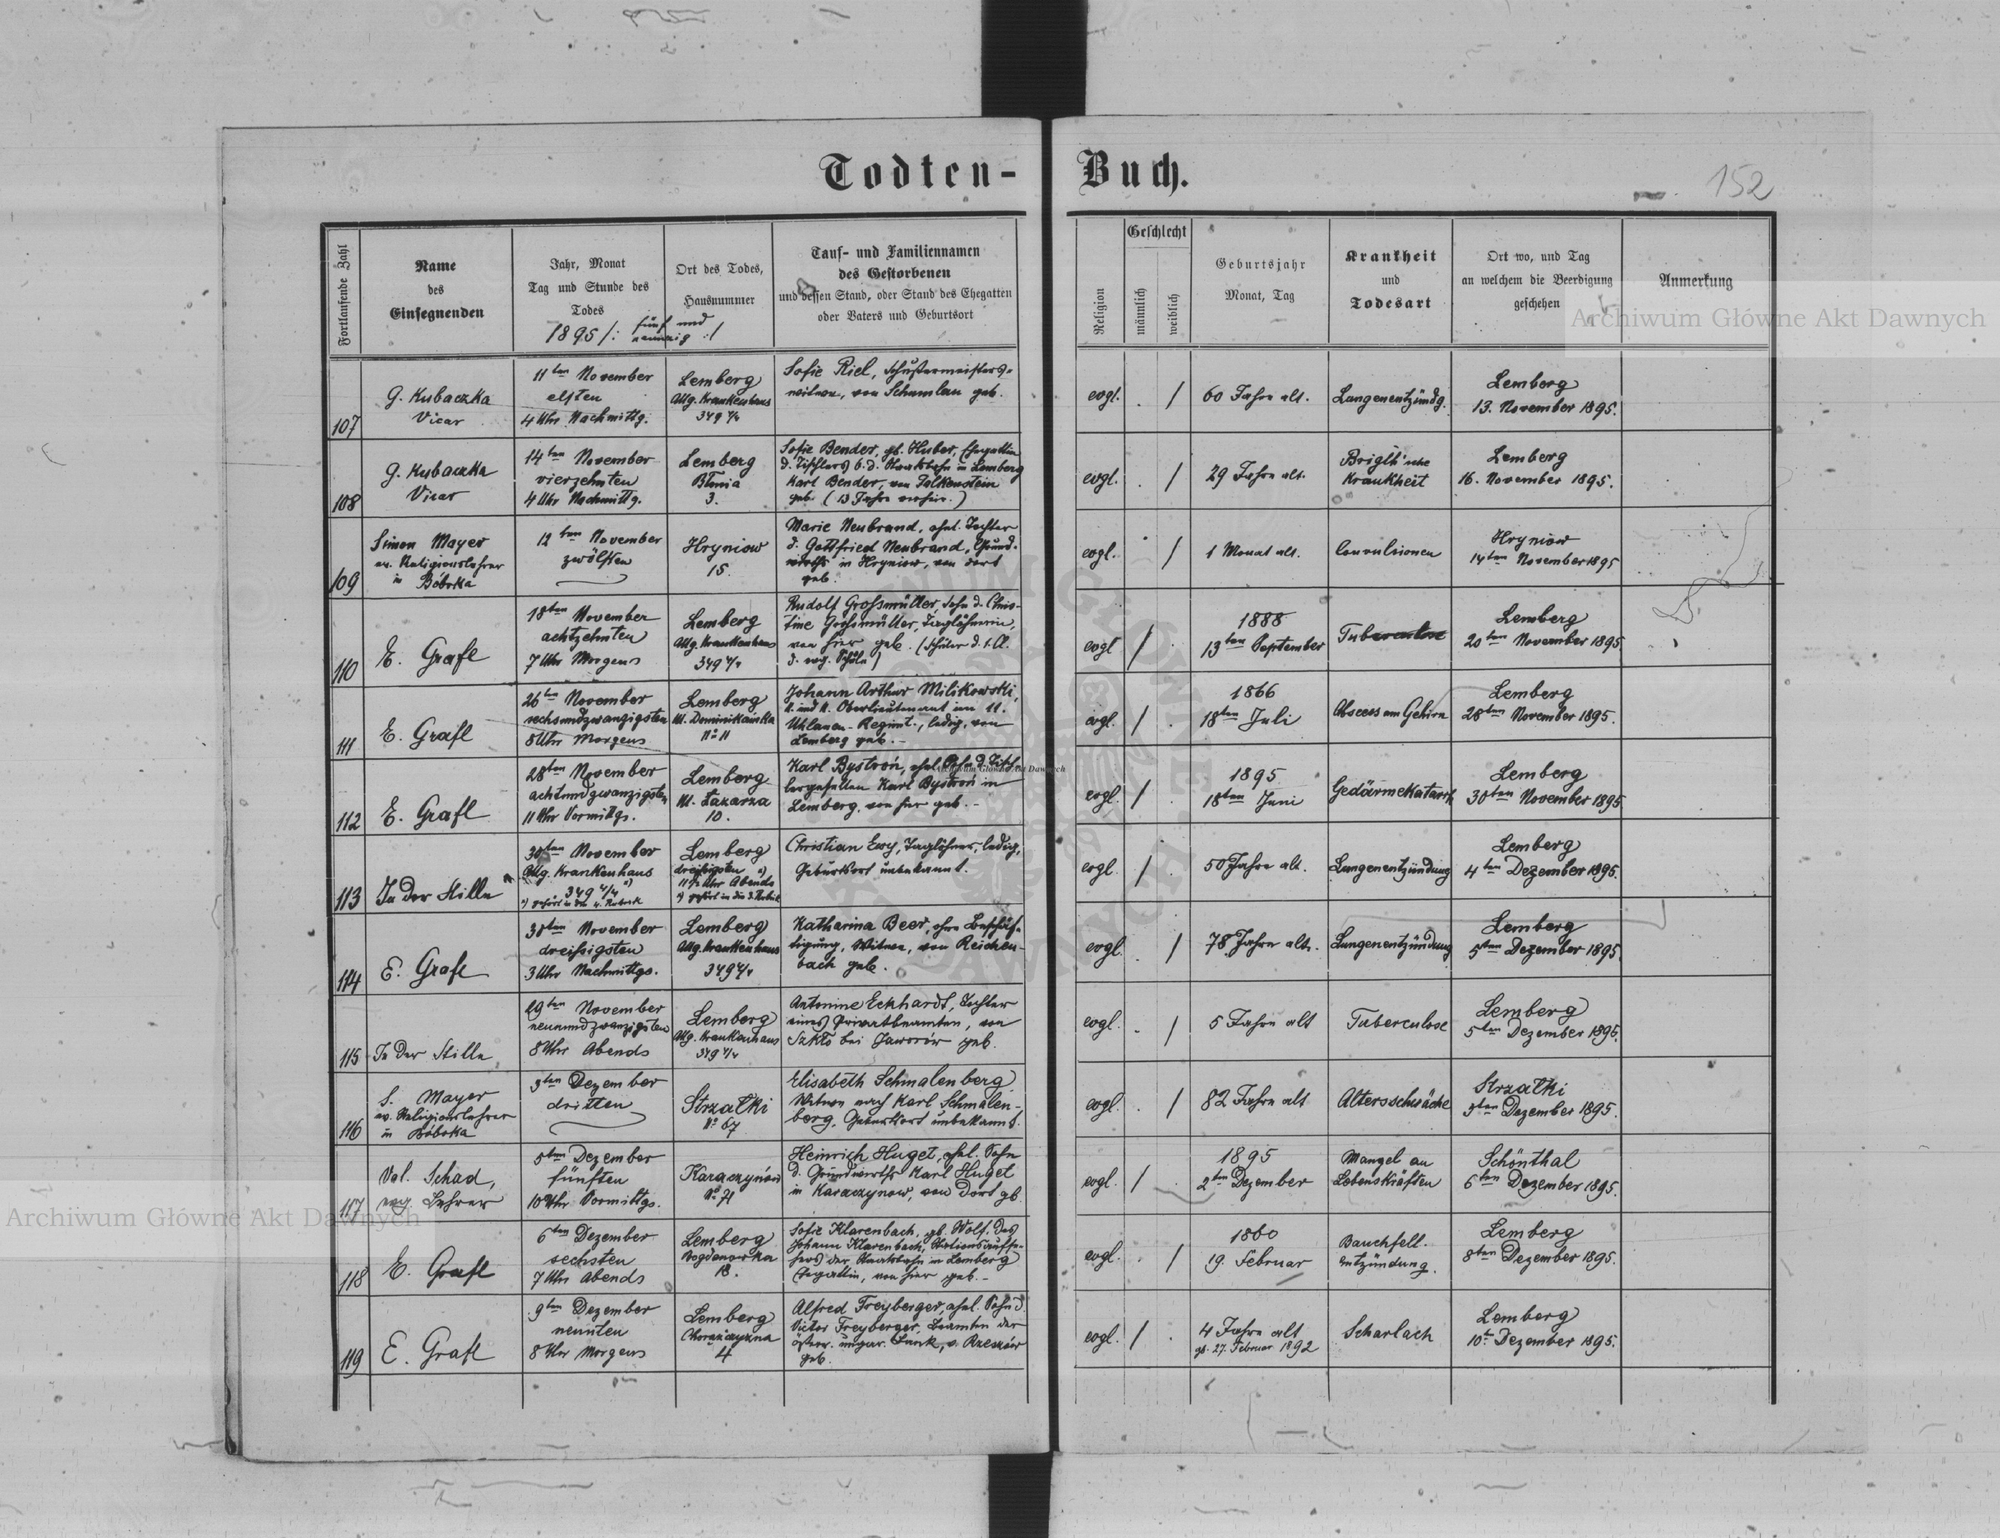 Todten-Buch.
152
Fortlaufende Zahl
Name
des
Einsegnenden
Jahr, Monat
Tag und Stunde des
Todes
1895 /: fünf und
neunzig :/
Ort des Todes,
Hausnummer
Tauf- und Familiennamen
des Gestorbenen
und dessen Stand, oder Stand des Ehegatten
oder Vaters und Geburtsort
Religion
Geschlecht
männlich
weiblich
Geburtsjahr
Monat, Tag
Krankheit
und
Todesart
Ort wo, und Tag
an welchem die Beerdigung
geschehen
Anmerkung
Archiwum Główne Akt Dawnych
107
G. Kubaczka
Vicar
11ten November
elften
4 Uhr Nachmittg.
Lemberg
Allg. Krankenhaus
349 4/4
Sofie Riel, Schustermeisters-
witwe, von Schumlau geb.
evgl.
/
60 Jahre alt.
Lungenentzündg.
Lemberg
13. November 1895.
108
G. Kubaczka
Vicar
14ten November
vierzehnten
4 Uhr Nachmittg.
Lemberg
Błonia
3.
Sofie Bender, gb. Huber, Ehegattin
d. Tischlers b. d. Staatsbahn in Lemberg
Karl Bender, von Falkenstein
geb. (13 Jahre verheir.)
evgl.
/
29 Jahre alt.
Brigth'sche
Krankheit
Lemberg
16. November 1895.
109
Simon Mayer
ev. Religionslehrer
in Bóbrka
12ten November
zwölften
Hryniow
15.
Marie Neubrand, ehel. Tochter
d. Gottfried Neubrand, Grund-
wirths in Hryniow, von dort
geb.
evgl.
/
1 Monat alt.
Convulsionen
Hryniow
14ten November 1895
110
E. Grafl
18ten November
achtzehnten
7 Uhr Morgens
Lemberg
Allg. Krankenhaus
349 4/4
Rudolf Grossmüller, Sohn d. Chris-
tine Grossmüller, Taglöhnerin,
von hier geb. (Schüler d. 1. Cl.
d. evg. Schule)
evgl
/
1888
13ten September
Tuberculose
Lemberg
20ten November 1895
111
E. Grafl
26ten November
sechsundzwanzigsten
8 Uhr Morgens
Lemberg
Ul. Dominikańska
No 11
Johann Arthur Milikowski,
k. und k. Oberlieutenant im 11.
Uhlanen-Regimt., ledig, von
Lemberg geb. -
evgl.
/
1866
18ten Juli
Abscess am Gehirn
Lemberg
28ten November 1895.
112
E. Grafl
28ten November
achtundzwanzigsten
11 Uhr Vormittgs.
Lemberg
Ul. Łazarza
10.
Karl Bystroń, ehel. Sohn d. Tisch-
lergesellen Karl Bystroń in
Lemberg, von hier geb. -
Archiwum Główne Akt Dawnych
evgl.
/
1895
18ten Juni
Gedärmekatarrh
Lemberg
30ten November 1895
113
In der Stille
30ten November
Allg. Krankenhaus
349 4/4 *)
*) gehört in die 4. Rubrik
Lemberg
dreissigsten *)
11 1/2 Uhr Abends
*) gehört in die 3. Rubrik
Christian Ewy, Taglöhner, ledig,
Geburtsort unbekannt.
evgl.
/
50 Jahre alt.
Lungenentzündung
Lemberg
4ten Dezember 1895.
114
E. Grafl
30ten November
dreissigsten
3 Uhr Nachmittgs.
Lemberg
Allg. Krankenhaus
349 4/4
Katharina Beer, ohne Beschäf-
tigung, Witwe, von Reichen-
bach geb.
evgl.
/
78 Jahre alt.
Lungenentzündung
Lemberg
5ten Dezember 1895.
115
In der Stille
29ten November
neunundzwanzigsten
8 Uhr Abends
Lemberg
Allg. Krankenhaus
349 4/4
Antonine Eckhardt, Tochter
eines Privatbeamten, von
Szkło bei Jaworów geb.
evgl.
/
5 Jahre alt
Tuberculose
Lemberg
5ten Dezember 1895.
116
S. Mayer
ev. Religionslehrer
in Bóbrka
3ten Dezember
dritten
Strzałki
No 67
Elisabeth Schmalenberg
Witwe nach Karl Schmalen-
berg, Geburtsort unbekannt.
evgl.
/
82 Jahre alt
Altersschwäche
Strzałki
3ten Dezember 1895.
117
Val. Schad,
evg. Lehrer
5ten Dezember
fünften
10 Uhr Vormittgs.
Karaczynów
No 71
Heinrich Huget, ehel. Sohn
d. Grundwirths Karl Huget
in Karaczynow, von dort gb.
evgl.
/
1895
2ten Dezember
Mangel an
Lebenskräften
Schönthal
6ten Dezember 1895.
Archiwum Główne Akt Dawnych
118
E. Grafl
6ten Dezember
sechsten
7 Uhr Abends
Lemberg
Bogdanowka
18.
Sofie Klarenbach, gb. Wolf, des
Johann Klarenbach, Stationsaufse-
hers der Staatsbahn in Lemberg
Ehegattin, von hier geb. -
evgl.
/
1860
19. Februar
Bauchfell-
entzündung.
Lemberg
8ten Dezember 1895.
119
E. Grafl
9ten Dezember
neunten
8 Uhr Morgens
Lemberg
Chorążczyzna
4
Alfred Freyberger, ehel. Sohn d.
Victor Freyberger, Beamten der
österr. ungar. Bank, v. Rzeszów
geb.
evgl.
/
4 Jahre alt
gb. 27. Februar 1892
Scharlach
Lemberg
10t. Dezember 1895.